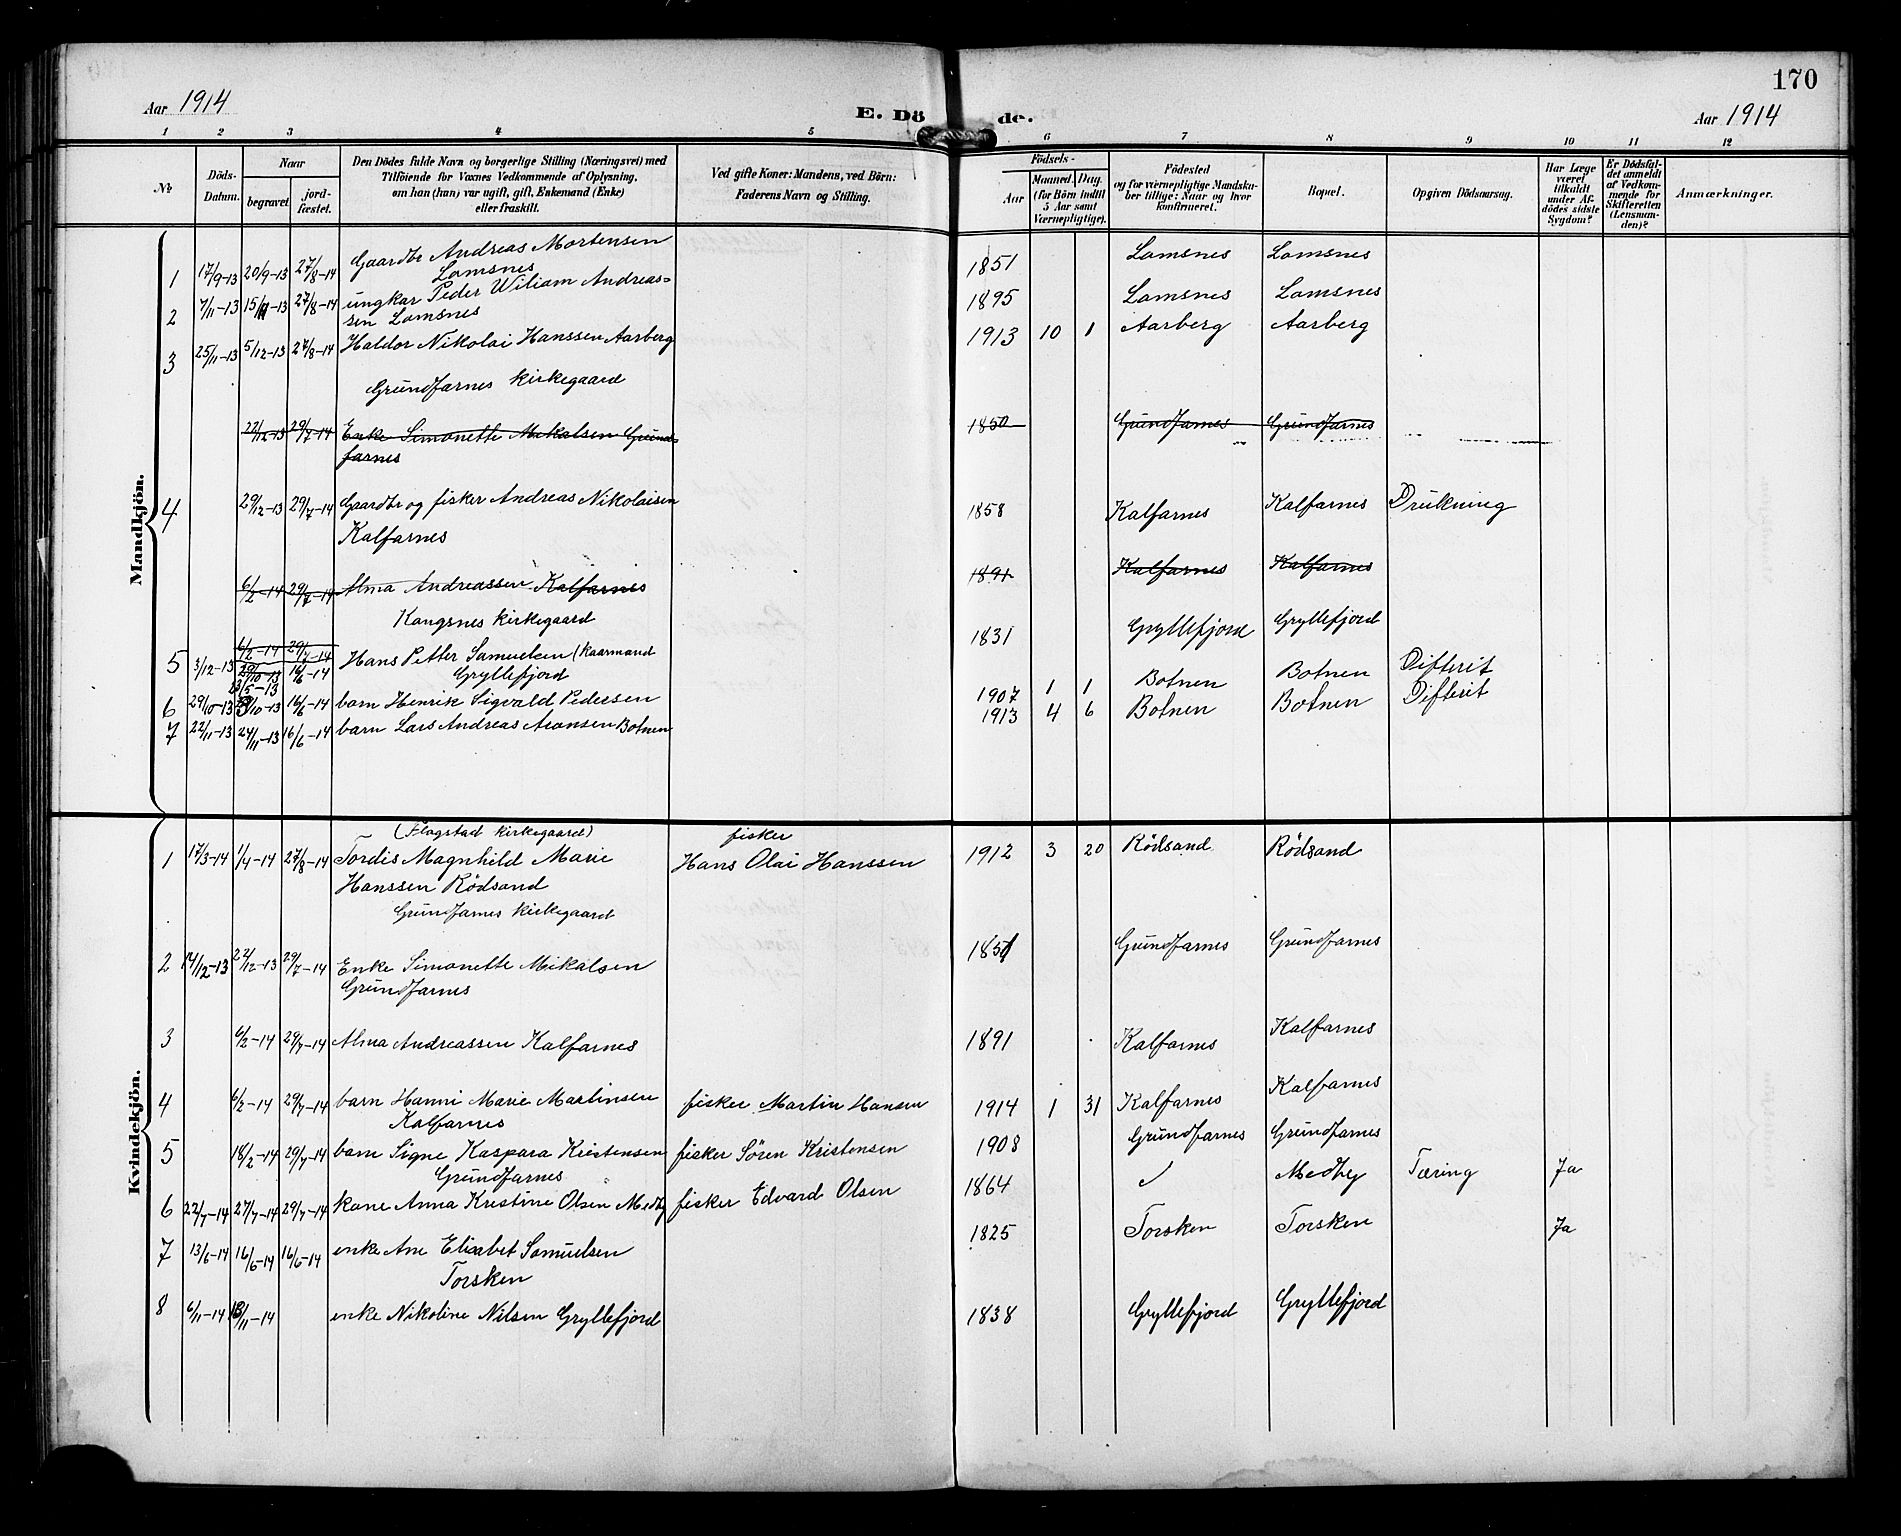 170
Aar 1914
E. Döde.
Aar 1914
1 2 3 4 5 6 7 8 9 10 11 12
No
Döds-Datum.
Naar
begravet
jordfæstet.
Den Dödes fulde Navn og borgerlige Stilling (Næringsvei) med
Tilföiende for Voxnes Vedkommende af Oplysning,
om han (hun) var ugift, gift, Enkemand (Enke)
eller fraskilt.
Ved gifte Koner: Mandens, ved Börn:
Faderens Navn og Stilling.
Födsels-
Aar
Maaned. Dag.
(for Börn indtil
5 Aar samt
Værnepligtige).
Födested
og for værnepligtige Mandska-
ber tillige: Naar og hvor
konfirmeret.
Bopæl.
Opgiven Dödsaarsag.
Har Læge
været
tilkaldt
under Af-
dödes sidste
Sygdom?
Er Dödsfal-
det anmeldt
af Vedkom-
mende for
Skifteretten
(Lensman-
den)?
Anmærkninger.
Mandkjön.
1 17/9-13 20/9-13 27/8-14 Gaardbr Andreas Mortensen 1851 Lomsnes Lomsnes
Lomsnes
2 7/11-13 15/11-13 27/8-14 ungkar Peder Wiliam Andreas= 1895 Lomsnes Lomsnes
sen Lomsnes
3 25/11-13 5/12-13 27/8-14 Haldor Nikolai Hanssen Aarberg 1913 10 1 Aarberg Aarberg
Grundfarnes kirkegaard
22/12-13 29/7-14 Enke Simonette Mikalsen Grund- 1850 Grundfarnes Grundfarnes
farnes
4 29/12-13 29/7-14 Gaardbr og fisker Andreas Nikolaisen 1858 Kalfarnes Kalfarnes Drukning
Kalfarnes
6/2-14 29/7-14 Alma Andreassen Kalfarnes 1891 Kalfarnes Kalfarnes
Kongsnes kirkegaard
6/2-14 29/7-14
5 3/12-13 29/10-13 16/6-14 Hans Petter Samuelsen (Kaarmand 1831 Gryllefjord Gryllefjord
13/5-13 Gryllefjord
6 29/10-13 /10-13 16/6-14 barn Henrik Sigvald Pedersen 1907 1 1 Botnen Botnen Difterit
7 22/11-13 24/11-13 16/6-14 barn Lars Andreas Aronsen Botnen 1913 4 6 Botnen Botnen Difterit
Kvindekjön.
(Flagstad kirkegaard) fisker
1 17/3-14 1/4-14 27/8-14 Tordis Magnhild Marie Hans Olai Hanssen 1912 3 20 Rödsand Rödsand
Hanssen Rödsand
Grundfarnes kirkegaard
2 14/12-13 22/12-13 29/7-14 Enke Simonette Mikalsen 1851 Grundfarnes Grundfarnes
Grundfarnes
3 6/2-14 29/7-14 Alma Andreassen Kalfarnes 1891 Kalfarnes Kalfarnes
4 6/2-14 29/7-14 barn Hanni Marie Martinsen fisker Martin Hansen 1914 1 31 Kalfarnes Kalfarnes
Kalfarnes
5 18/2-14 29/7-14 barn Signe Kaspara Kristensen fisker Sören Kristensen 1908 Grundfarnes Grundfarnes
Grundfarnes
6 22/7-14 27/7-14 29/7-14 kone Anna Kristine Olsen Medby fisker Edvard Olsen 1864 Medby Tæring Ja
7 13/6-14 16/6-14 16/6-14 enke Ane Elisabet Samuelsen 1825 Torsken Torsken Ja
Torsken
8 6/11-14 13/11-14 enke Nikoline Nilsen Gryllefjord 1838 Gryllefjord Gryllefjord